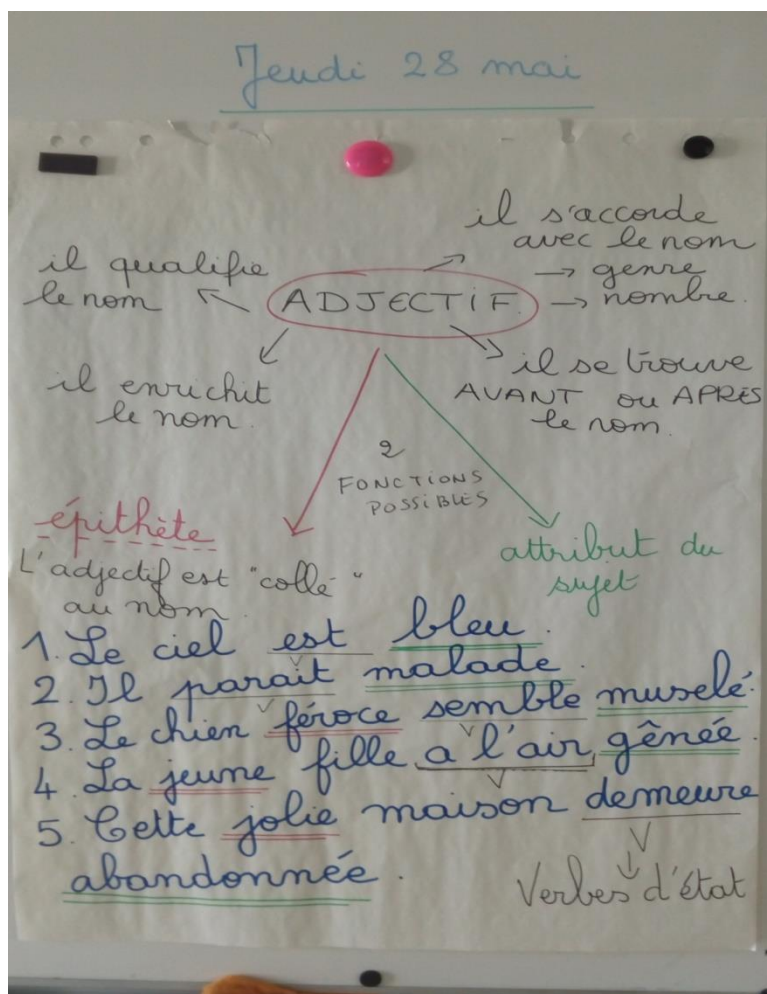 Jeudi 28 mai
il s'accorde
avec le nom
→ genre
→ nombre.
il qualifie
le nom
ADJECTIF
il enrichit
le nom.
il se trouve
AVANT ou APRÈS
le nom.
2
FONCTIONS
POSSIBLES
épithète
L'adjectif est "collé"
au nom.
attribut du
sujet
1. Le ciel est bleu.
2. Il parait malade.
3. Le chien féroce semble muselé.
4. La jeune fille a l'air gênée.
5. Cette jolie maison demeure
abandonnée.
V
V
V
V
V
Verbes d'état